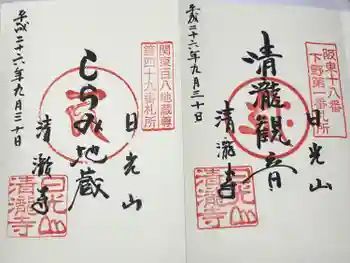 平成二十六年九月三十日
関東百八地蔵尊
第四十九番札所
しらみ地蔵
日光山
清瀧寺
日光山
清瀧寺
平成二十六年九月三十日
阪東十八番
下野第一番札所
清瀧観音
日光山
清瀧寺
日光山
清瀧寺